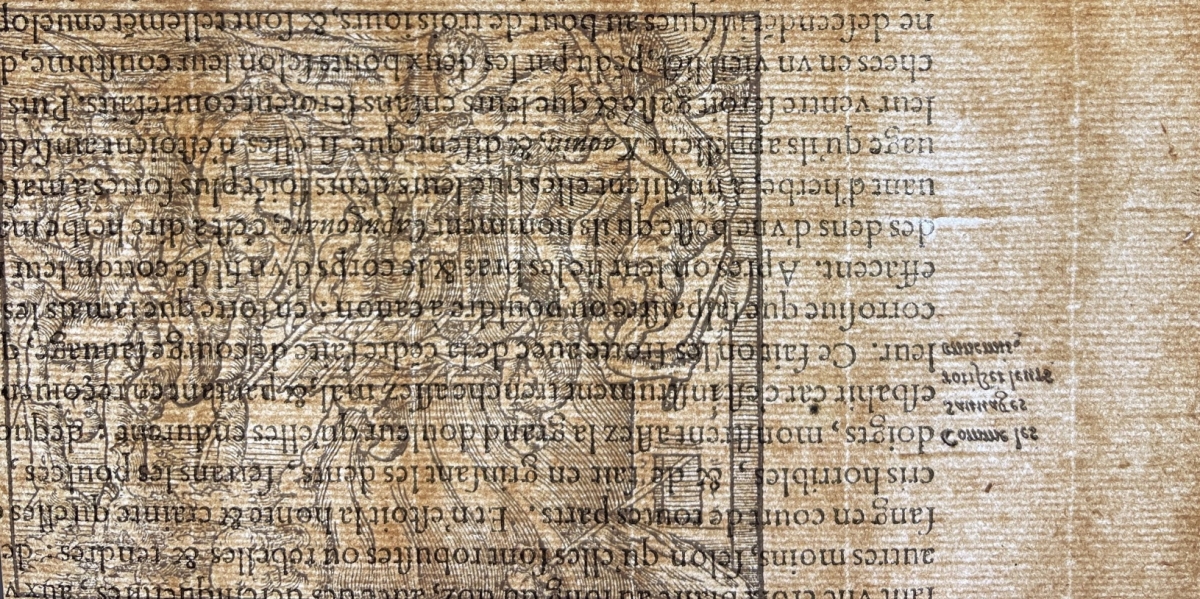 autres moins, selon qu'elles sont robustes ou tendres: de
sang en court de toutes parts. Et n'estoit la honte & crainte qu'elles
cris horribles, & de fait en grinsant les dents, serrans les poulces
doigts, monstrent assez la grand douleur qu'elles endurent:
esbahir car cest instrument trenche assez mal, & partant en
leur. Ce fait on les frotte auec de la cedre faite de courge sauuage,
corrosiue que salpaistre ou pouldre a canon: en sorte que iamais les
effacent. Aples on leur lie les bras & le corps d'vn fil de cotton leur
des dens d'vne beste qu'ils nomment Capugouare, c'est à dire herbe
uant d'herbe, à fin disent elles que leurs dents soiēt plus fortes à
uage qu'ils appellent Kaouin, & disent que si elles n'estoient ainsi
leur ventre seroit gasté & que leurs enfans seroient contrefaits. Puis
chees en vn vieil lict, pēdu par les deux bouts selon leur coustume,
ne descendēt iusques au bout de trois iours, & sont tellemēt enuelop
Comme les
Sauuages
rotissēt leurs
ennemis.